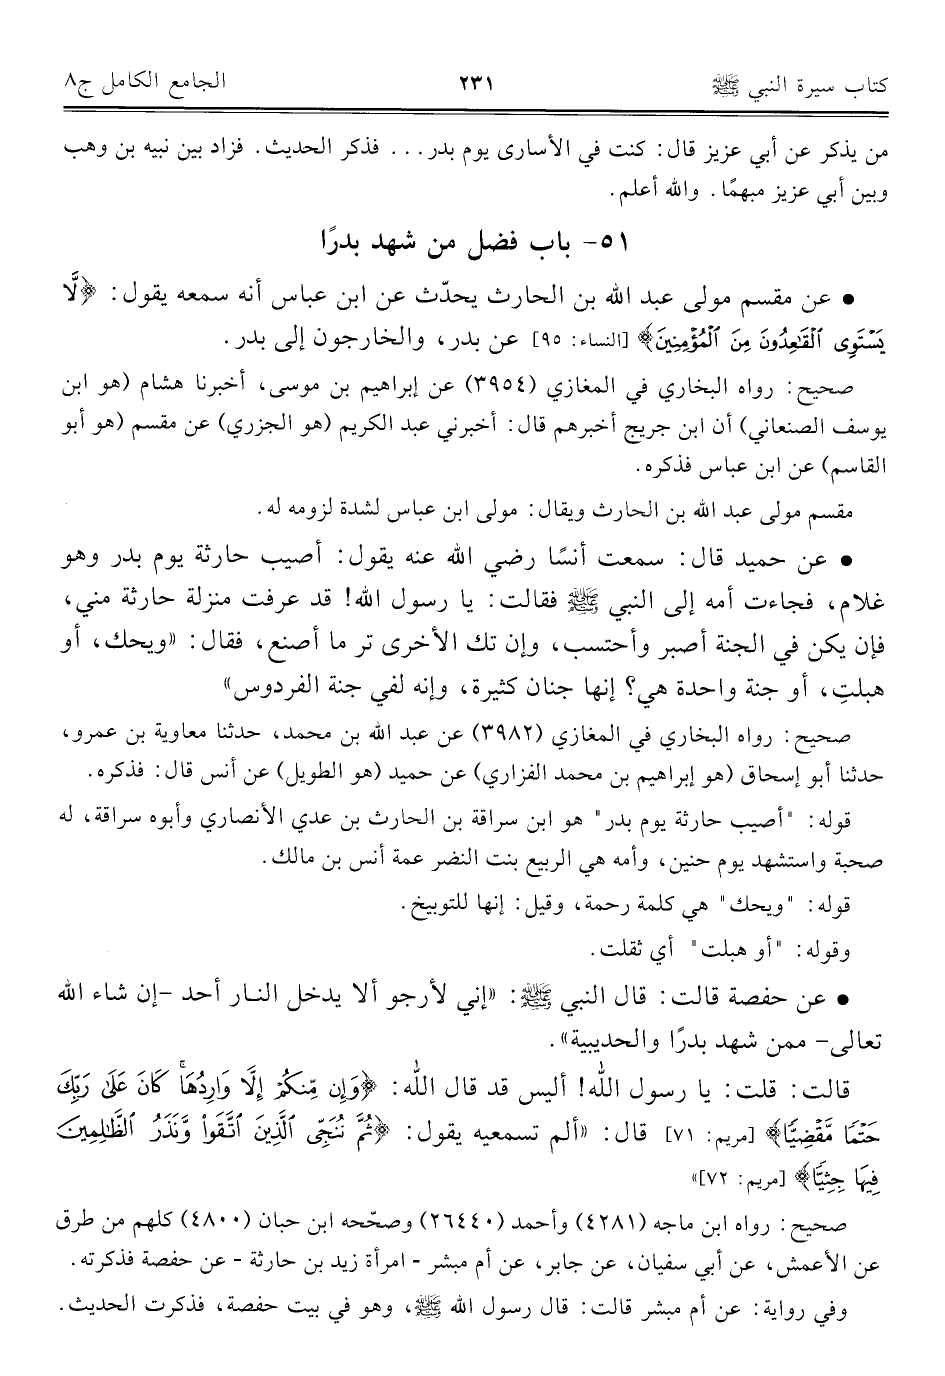 كتاب سيرة النبي ﷺ ٢٣١ الجامع الكامل ج٨
من يذكر عن أبي عزيز قال: كنت في الأسارى يوم بدر... فذكر الحديث. فزاد بين نبيه بن وهب
وبين أبي عزيز مبهمًا. والله أعلم.
٥١- باب فضل من شهد بدرًا
• عن مقسم مولى عبد الله بن الحارث يحدّث عن ابن عباس أنه سمعه يقول: ﴿لَّا
يَسۡتَوِي ٱلۡقَٰعِدُونَ مِنَ ٱلۡمُؤۡمِنِينَ﴾ [النساء: ٩٥] عن بدر، والخارجون إلى بدر.
صحيح: رواه البخاري في المغازي (٣٩٥٤) عن إبراهيم بن موسى، أخبرنا هشام (هو ابن
يوسف الصنعاني) أن ابن جريج أخبرهم قال: أخبرني عبد الكريم (هو الجزري) عن مقسم (هو أبو
القاسم) عن ابن عباس فذكره.
مقسم مولى عبد الله بن الحارث ويقال: مولى ابن عباس لشدة لزومه له.
• عن حميد قال: سمعت أنسًا رضي الله عنه يقول: أصيب حارثة يوم بدر وهو
غلام، فجاءت أمه إلى النبي ﷺ فقالت: يا رسول الله! قد عرفت منزلة حارثة مني،
فإن يكن في الجنة أصبر وأحتسب، وإن تك الأخرى تر ما أصنع، فقال: «ويحك، أو
هبلتِ، أو جنة واحدة هي؟ إنها جنان كثيرة، وإنه لفي جنة الفردوس»
صحيح: رواه البخاري في المغازي (٣٩٨٢) عن عبد الله بن محمد، حدثنا معاوية بن عمرو،
حدثنا أبو إسحاق (هو إبراهيم بن محمد الفزاري) عن حميد (هو الطويل) عن أنس قال: فذكره.
قوله: "أصيب حارثة يوم بدر" هو ابن سراقة بن الحارث بن عدي الأنصاري وأبوه سراقة، له
صحبة واستشهد يوم حنين، وأمه هي الربيع بنت النضر عمة أنس بن مالك.
قوله: "ويحك" هي كلمة رحمة، وقيل: إنها للتوبيخ.
وقوله: "أو هبلت" أي ثقلت.
• عن حفصة قالت: قال النبي ﷺ: «إني لأرجو ألا يدخل النار أحد -إن شاء الله
تعالى- ممن شهد بدرًا والحديبية».
قالت: قلت: يا رسول الله! أليس قد قال الله: ﴿وَإِن مِّنكُمۡ إِلَّا وَارِدُهَاۚ كَانَ عَلَىٰ رَبِّكَ
حَتۡمٗا مَّقۡضِيّٗا﴾ [مريم: ٧١] قال: «ألم تسمعيه يقول: ﴿ثُمَّ نُنَجِّي ٱلَّذِينَ ٱتَّقَواْ وَّنَذَرُ ٱلظَّٰلِمِينَ
فِيهَا جِثِيّٗا﴾ [مريم: ٧٢]»
صحيح: رواه ابن ماجه (٤٢٨١) وأحمد (٢٦٤٤٠) وصحّحه ابن حبان (٤٨٠٠) كلهم من طرق
عن الأعمش، عن أبي سفيان، عن جابر، عن أم مبشر - امرأة زيد بن حارثة - عن حفصة فذكرته.
وفي رواية: عن أم مبشر قالت: قال رسول الله ﷺ، وهو في بيت حفصة، فذكرت الحديث.